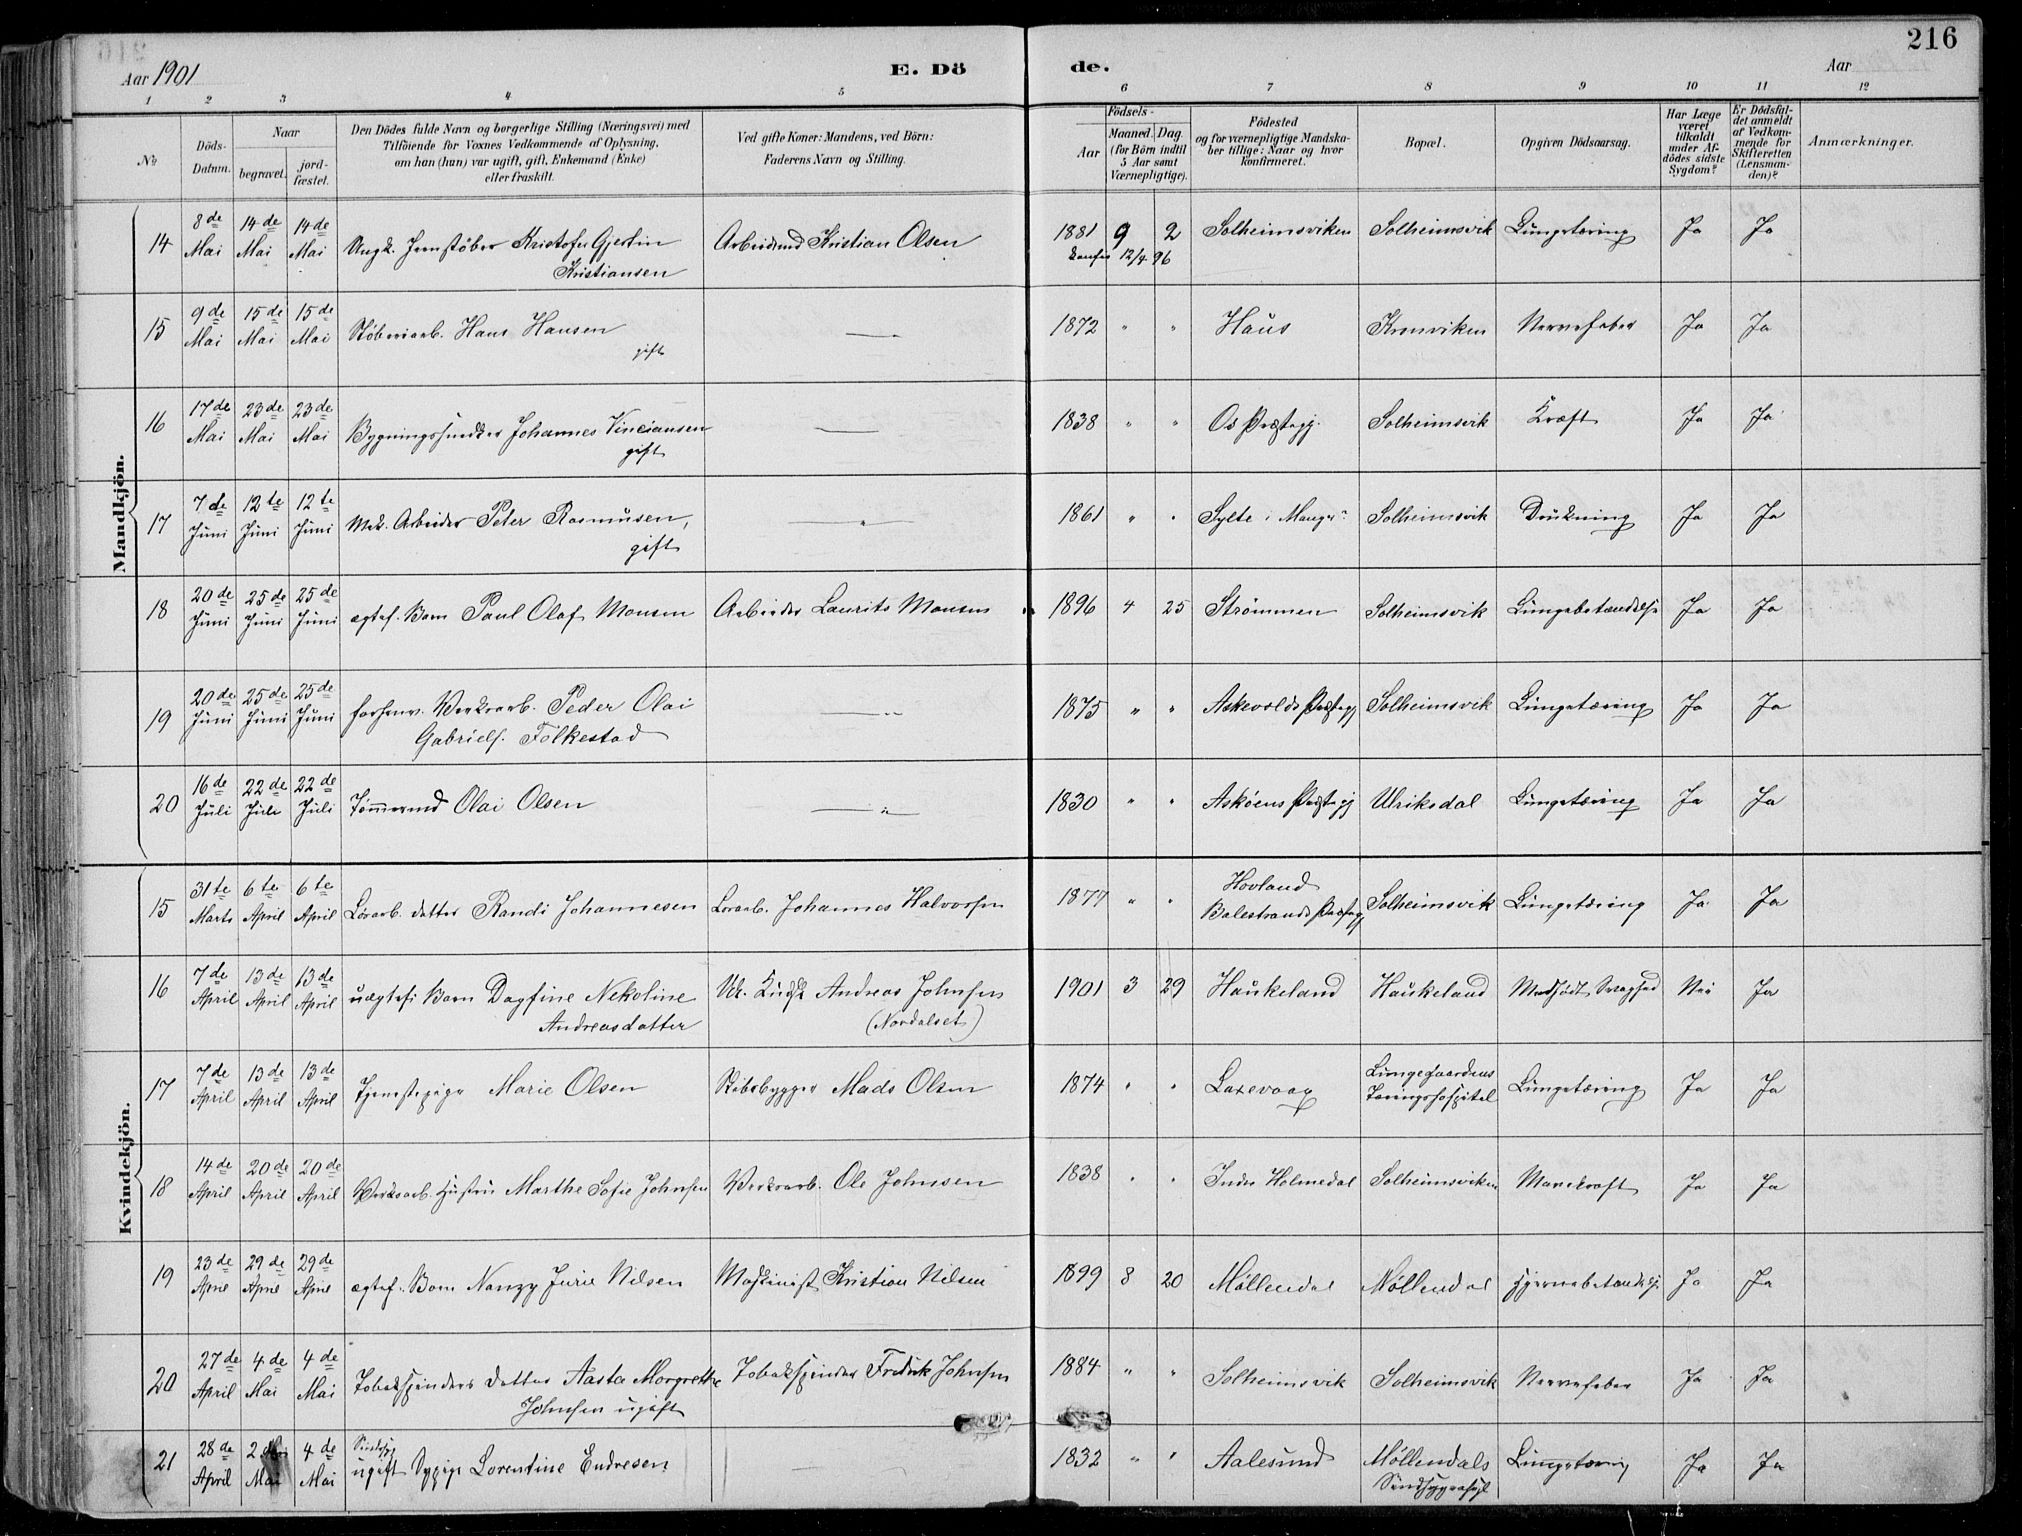 216
Aar 1901
E. Dö
de.
Aar
1 2 3 4 5 6 7 8 9 10 11 12
№
Döds-
Datum.
Naar
begravet.
jord-
fæstet.
Den Dödes fulde Navn og borgerlige Stilling (Næringsvei) med
Tilföiende for Voxnes Vedkommende af Oplysning,
om han (hun) var ugift, gift, Enkemand (Enke)
eller fraskilt.
Ved gifte Koner: Mandens, ved Börn:
Faderens Navn og Stilling.
Födsels-
Aar
Maaned. Dag.
(for Börn indtil
5 Aar samt
Værnepligtige).
Födested
og for værnepligtige Mandska-
ber tillige: Naar og hvor
konfirmeret.
Bopæl.
Opgiven Dödsaarsag.
Har Læge
været
tilkaldt
under Af-
dödes sidste
Sygdom?
Er Dödsfal-
det anmeldt
af Vedkom-
mende for
Skifteretten
(Lensman-
den)?
Anmærkninger.
Mandkjön.
14 8de Mai 14de Mai 14de Mai Ungk. Jernstøber Kristofer Gjertin Arbeidsmd Kristian Olsen 1881 9 2 Solheimsviken Solheimsvik Lungetæring Ja Ja
Kristiansen konfir 12/4 96
15 9de Mai 15de Mai 15de Mai Støberiarb. Hans Hansen — 1872 " " Haus Kronviken Nervefeber Ja Ja
gift
16 17de Mai 23de Mai 23de Mai Bygningssnedker Johannes Vinciansen — 1838 " " Os Præstegj. Solheimsvik Kræft Ja Ja
gift
17 7de Juni 12te Juni 12te Juni Mek. Arbeider Peter Rasmusen, " 1861 " " Sylte i Manger Solheimsvik Drukning Ja Ja
gift
18 20de Juni 25de Juni 25de Juni ægtef. Barn Paul Olaf Monsen Arbeider Laurits Monsen 1896 4 25 Strömmen Solheimsvik Lungebetændelse Ja Ja
19 20de Juni 25de Juni 25de Juni forhenv. Verksarb. Peder Olai — " — 1875 " " Askevolds Præstegj Solheimsvik Lungetæring Ja Ja
Gabriels. Folkestad
20 16de Juli 22de Juli 22de Juli Tømmermd Olai Olsen — " — 1830 " " Askøens Præstegj Ulriksdal Lungetæring Ja Ja
Kvindekjön.
15 31te Marts 6te April 6te April Lösarb. datter Randi Johannesen Lösarb. Johannes Halvorsen 1877 " " Hovland Solheimsvik Lungetæring Ja Ja
Balestrands Præstegj
16 7de April 13de April 13de April uægtef. Barn Dagfine Nekoline Andreas Johnsen 1901 3 29 Haukeland Haukeland Medfødt Svaghed Nei Ja
Andreasdatter (Nordalset)
17 7de April 13de April 13de April Tjenestepige Marie Olsen Skibsbygger Mads Olsen 1874 " " Laxevaag Lungegaardens Lungetæring Ja Ja
Tæringshospital
18 14de April 20de April 20de April Verksarb. Hustru Marthe Sofie Johnsen Verksarb. Ole Johnsen 1838 " " Indre Holmedal Solheimsviken Mavekræft Ja Ja
19 23de April 29de April 29de April ægtef. Barn Nanzy Jurie Nilsen Maskinist Kristian Nilsen 1899 8 20 Møllendal Møllendal Hjernebetændelse Ja Ja
20 27de April 4de Mai 4de Mai Tobakspinders datter Aasta Margrethe Tobakspinder Fredrik Johnsen 1884 " " Solheimsvik Solheimsvik Nervefeber Ja Ja
Johnsen ugift
21 28de April 2 Mai 4de Mai Sindssyg
ugift Sypige Lorentine Endresen. — 1832 " " Aalesund Møllendals Lungetæring Ja Ja
Sindsygeasyl